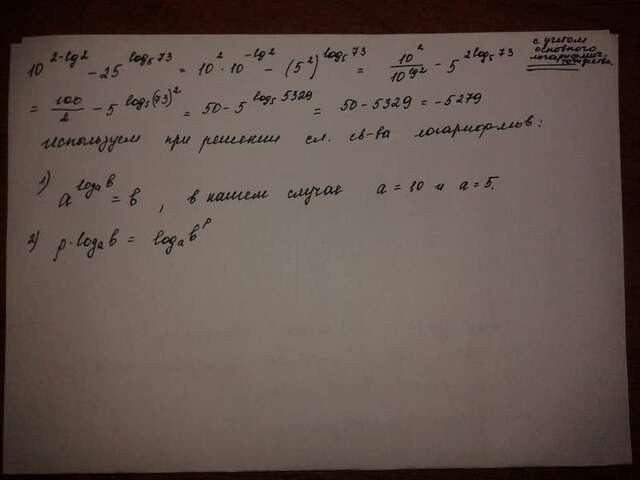 10^{2-lg2} - 25^{log₅73} = 10² · 10^{-lg2} - (5²)^{log₅73} = 10²/10^{lg2} - 5^{2log₅73}
с учетом
основного
логарифмич.
тождества.
= 100/2 - 5^{log₅(73)²} = 50 - 5^{log₅5329} = 50 - 5329 = -5279
используем при решении сл. св-ва логарифмов:
1) a^{logₐb} = b, в нашем случае a = 10 и a = 5.
2) p·logₐb = logₐb^p